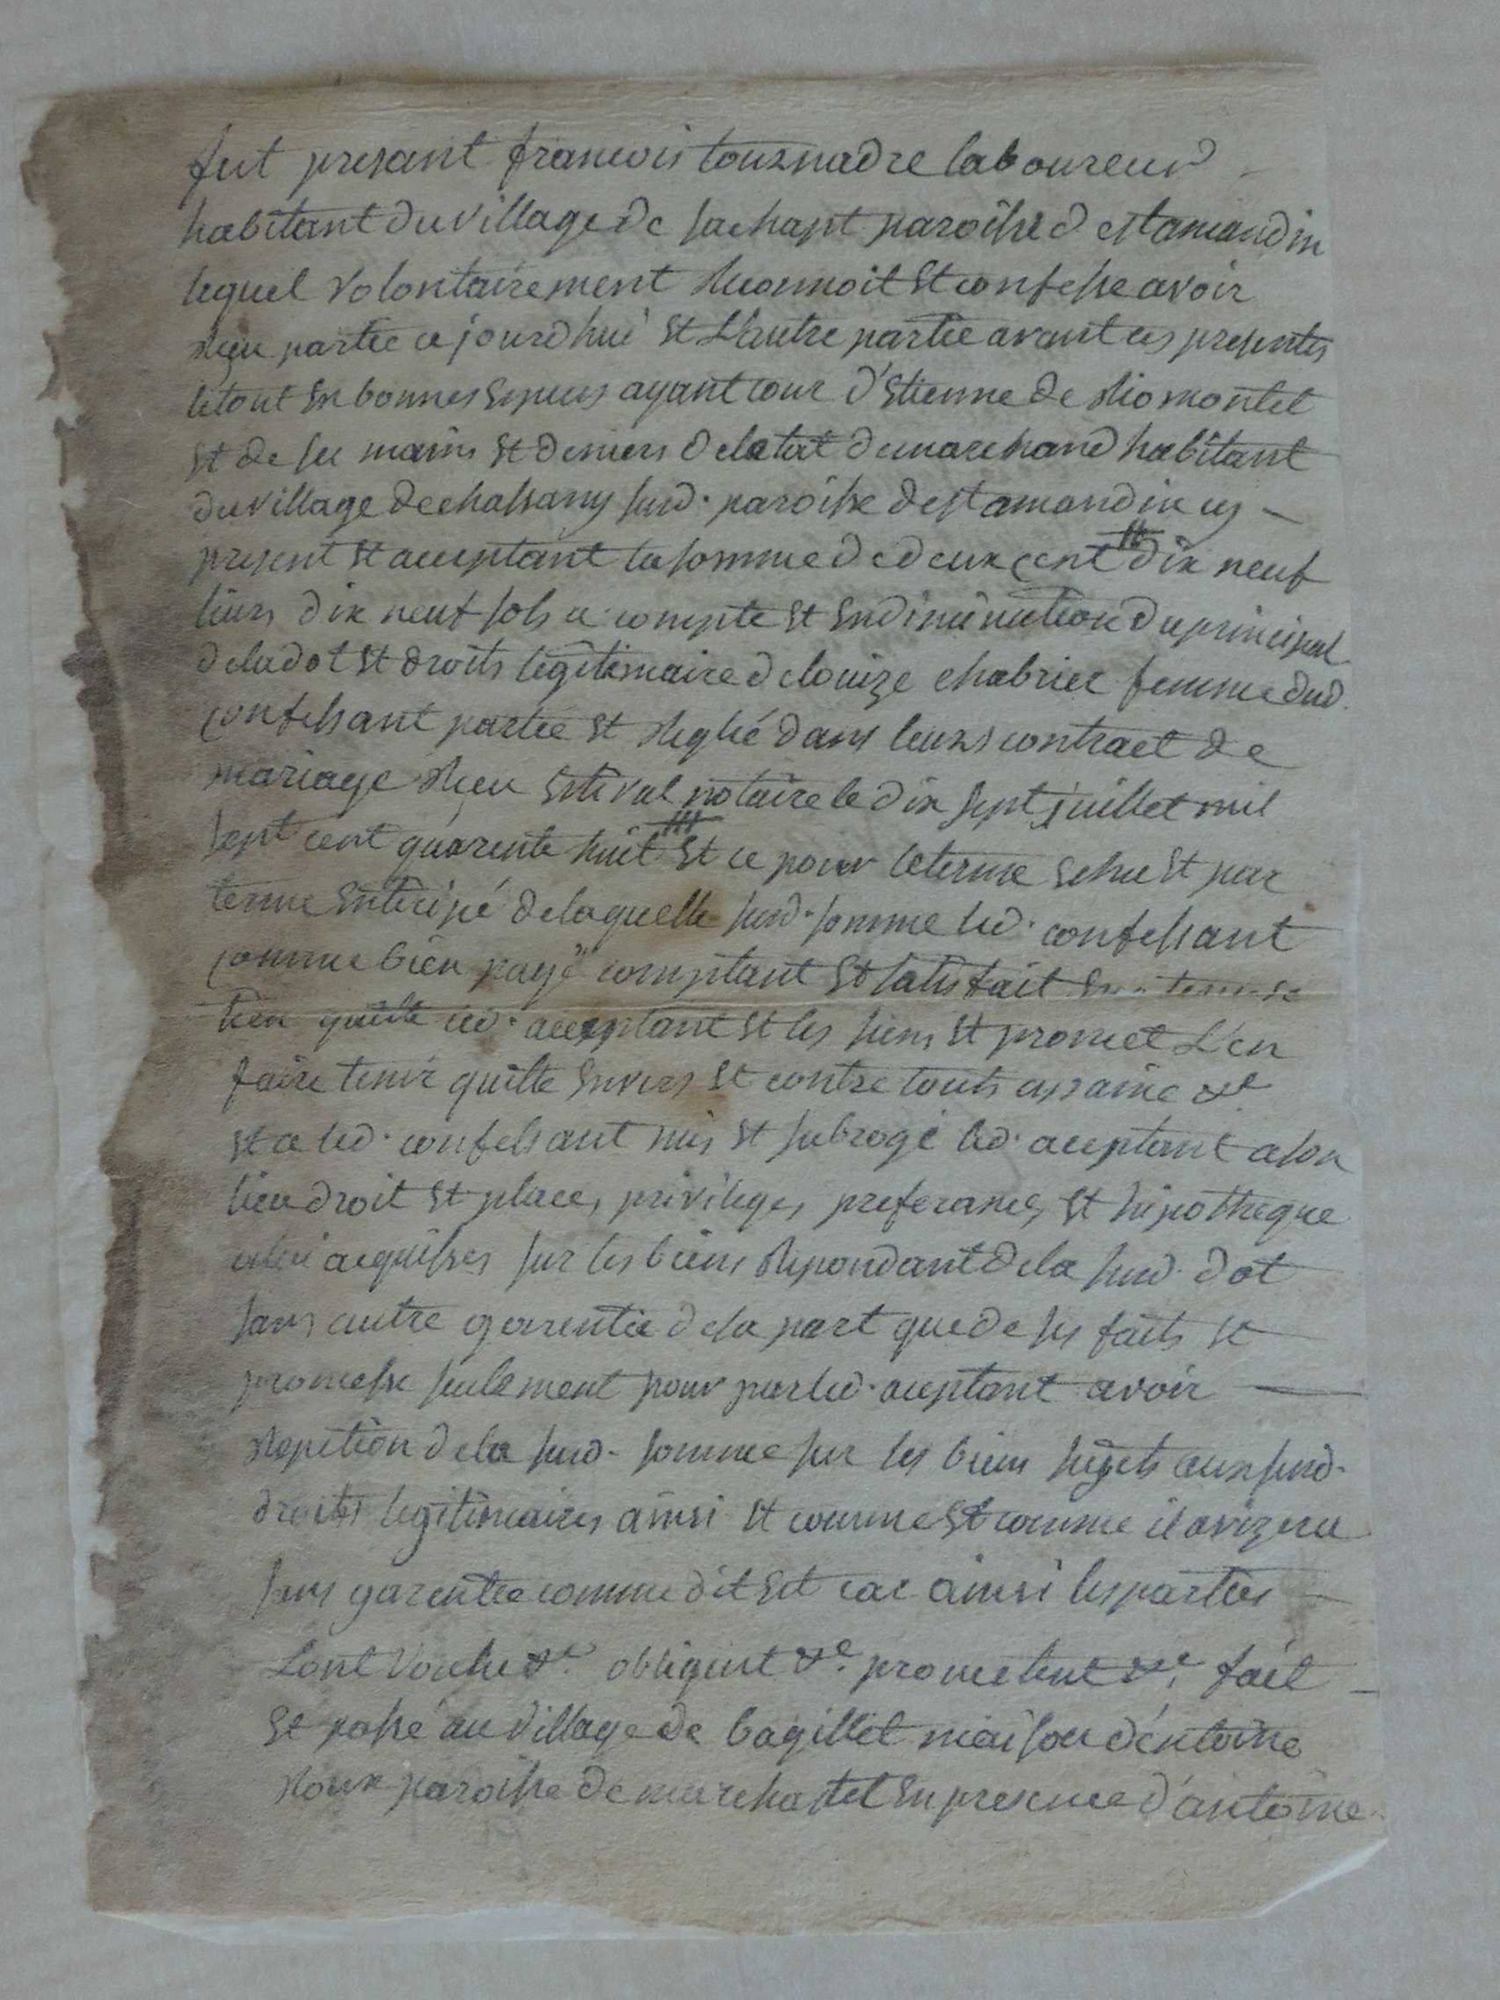 fut presant francois tournadre laboureur
habitant du village de sachapt paroisse de st amandin
lequel volontairement reconnoit et confesse avoir
reçu partie ce jourdhui et l'autre partie avant ces presentes
le tout en bonnes espuces ayant cour d'Etienne de riomontel
et de ses mains et deniers de letat de marchand habitant
du village de chassany susd. paroisse de st amandin icy
present et acceptant la somme de deux cent dix neuf
livres dix neuf sols a compte et en diminution du principal
de la dot et droits legitimaire de louize chabrier femme dud.
confessant partie et reglé dans leurs contract de
mariage reçu Estival notaire le dix sept juillet mil
sept cent quarente huit et ce pour le terme echu et par
terme enticipé de laquelle susd. somme led. confessant
comme bien payé comptant et satisfait en
tien quitte led. acceptant et les siens et promet l'en
faire tenir quitte envers et contre touts a peine &c
et a led. confessant mis et subrogé led. acceptant a son
lieu droit et place, privileges, preferances et hipotheque
a lui acquises sur les biens repondant de la susd. dot
sans autre garentie de sa part que de ses faits et
promesse seulement pour par led. acceptant avoir
repetion de la susd. somme sur les biens sujets aux susd.
droits legitimaires ainsi et comme et comme il avizera
sans garentie comme dit est car ainsi les parties
l'ont voulu &c. obligent &c. prometent &c. fait
et passé au village de bagillet maison d'entoine
roux paroisse de marchastel en presence d'antoine